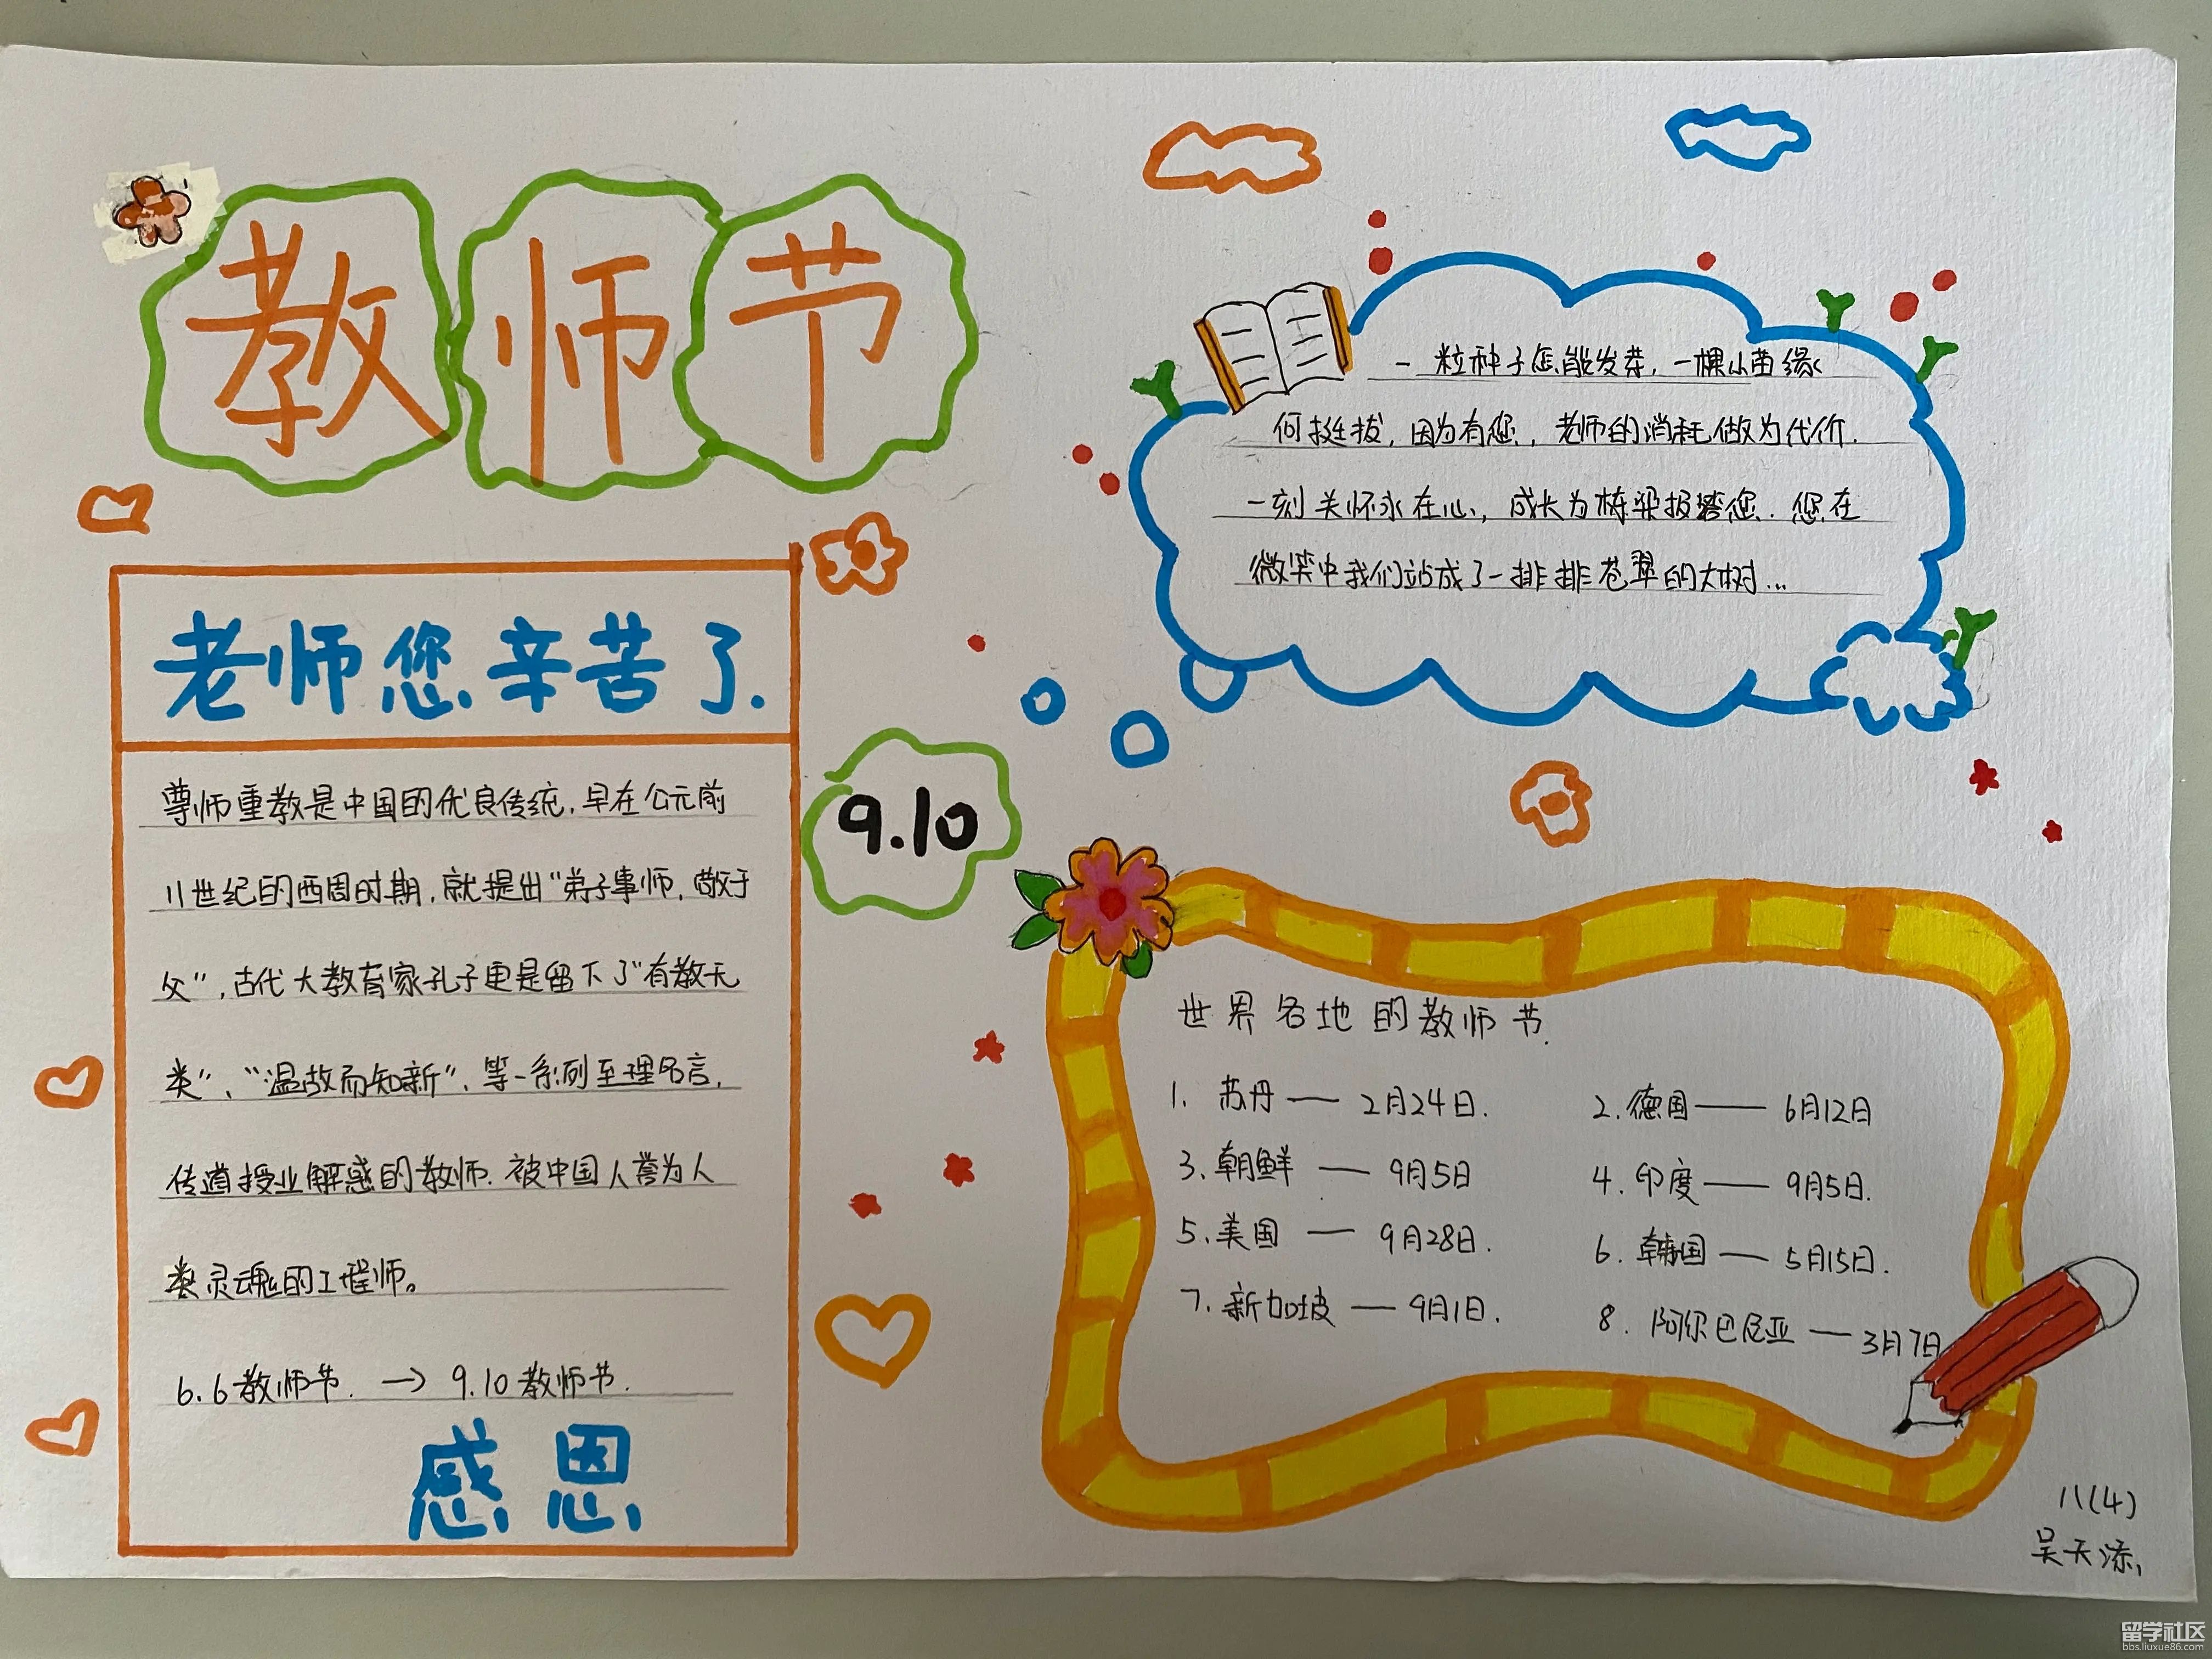 教师节
老师您辛苦了.
尊师重教是中国的优良传统,早在公元前
11世纪的西周时期,就提出“弟子事师,敬于
父”,古代大教育家孔子更是留下了“有教无
类”、“温故而知新”、等一系列至理名言,
传道授业解惑的教师.被中国人誉为人
类灵魂的工程师。
6.6教师节. → 9.10教师节.
感恩
9.10
一粒种子怎能发芽,一棵小苗缘
何挺拔,因为有您,老师的消耗做为代价.
一刻关怀永在心,成长为栋梁报答您.您在
微笑中我们站成了一排排苍翠的大树...
世界各地的教师节.
1. 苏丹 —— 2月24日.
2.德国 —— 6月12日
3.朝鲜 —— 9月5日
4.印度 —— 9月5日.
5.美国 —— 9月28日.
6.韩国 —— 5月15日.
7.新加坡 —— 9月1日.
8.阿尔巴尼亚 —— 3月7日
八(4)
吴天添
留学社区
bbs.liuxue86.com